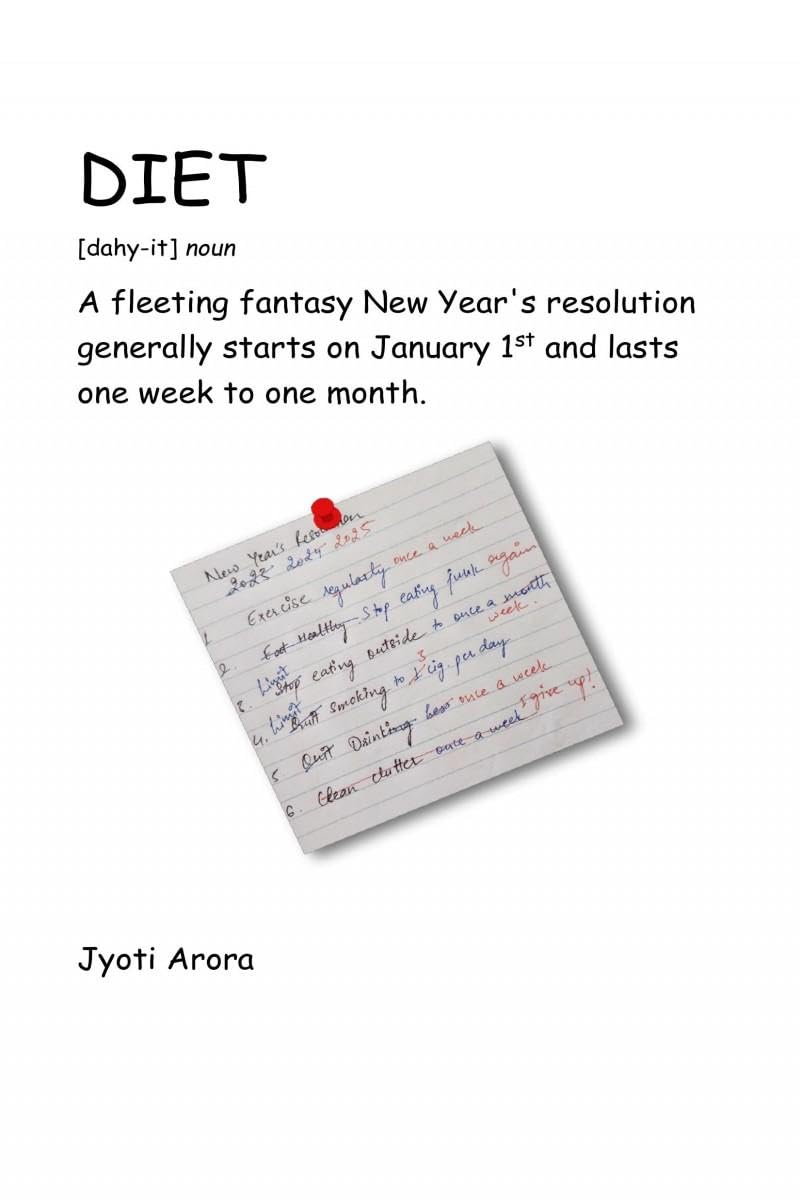 DIET
[dahy-it] noun
A fleeting fantasy New Year's resolution
generally starts on January 1st and lasts
one week to one month.
New Year's Resolution
2023 2024 2025
1 Exercise regularly once a week
2. Eat Healthy Stop eating junk again
3. Limit Stop eating outside to once a month week.
4. Limit Quit smoking to 1 3 cig. per day
5. Quit Drinking less once a week
6. Clean clutter once a week I give up!
Jyoti Arora